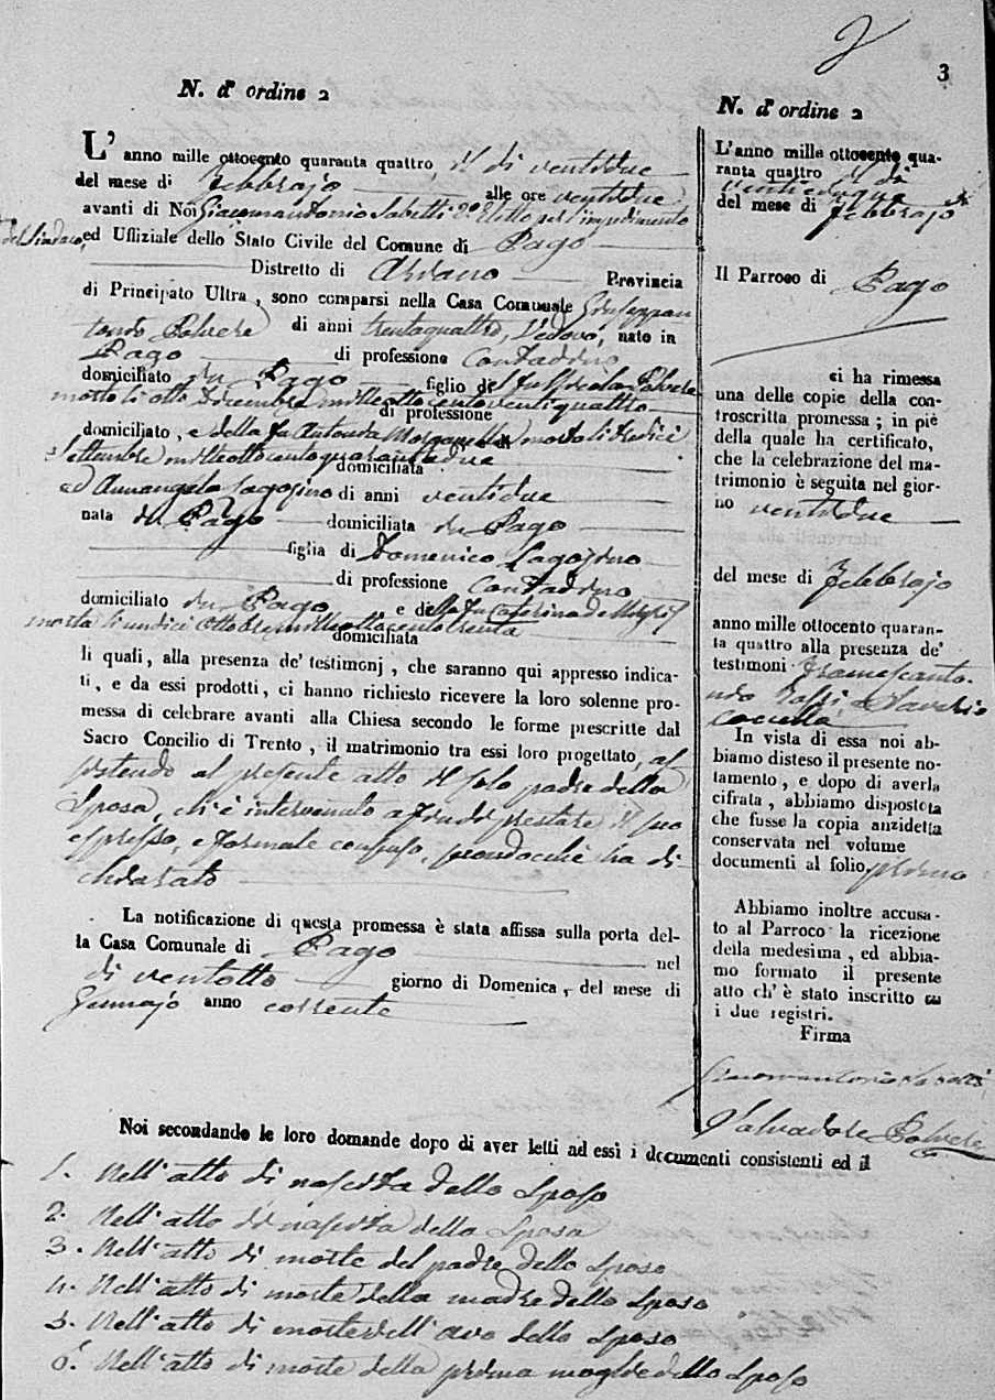 3
N. d' ordine 2
L' anno mille ottocento quaranta quattro, il di ventidue
del mese di Febbrajo alle ore ventidue
avanti di Noi Giacomantonio Sabetti 2.º Eletto per l'impedimento
del Sindaco, ed Uffiziale dello Stato Civile del Comune di Pago
Distretto di Ariano Provincia
di Principato Ultra, sono comparsi nella Casa Comunale Giuseppan
tonio Polvere di anni trentaquattro, Vedovo, nato in
Pago di professione Contadino
domiciliato in Pago figlio del fu Nicola Polvere
morto li otto Dicembre milleottocentoventiquattro
di professione
domiciliato, e della fu Antonia Morganella morta li tredici
Settembre milleottocentoquarantadue
domiciliata
ed Annangela Iagosino di anni ventidue
nata in Pago domiciliata in Pago
figlia di Domenico Iagosino
di professione Contadino
domiciliato in Pago e della fu Caterina de
morta li undici Ottobre milleottocentotrenta
domiciliata
li quali, alla presenza de' testimonj, che saranno qui appresso indica-
ti, e da essi prodotti, ci hanno richiesto ricevere la loro solenne pro-
messa di celebrare avanti alla Chiesa secondo le forme prescritte dal
Sacro Concilio di Trento, il matrimonio tra essi loro progettato, as
sistendo al presente atto il solo padre della
Sposa, ch'è intervenuto affin di prestare il suo
espresso, e formale consenso, siccome ha di
chiarato
La notificazione di questa promessa è stata affissa sulla porta del-
la Casa Comunale di Pago nel
di ventotto giorno di Domenica, del mese di
Gennajo anno corrente
N. d' ordine 2
L'anno mille ottocento qua-
ranta quattro il di
ventidue
del mese di Febbrajo
Il Parroco di Pago
ci ha rimessa
una delle copie della con-
troscritta promessa; in piè
della quale ha certificato,
che la celebrazione del ma-
trimonio è seguita nel gior-
no ventidue
del mese di Febbrajo
anno mille ottocento quaran-
ta quattro alla presenza de'
testimoni Francescanto-
nio Rossi e Saverio
Coccilla
In vista di essa noi ab-
biamo disteso il presente no-
tamento, e dopo di averla
cifrata, abbiamo disposto
che fusse la copia anzidetta
conservata nel volume
documenti al folio primo
Abbiamo inoltre accusa-
to al Parroco la ricezione
della medesima, ed abbia-
mo formato il presente
atto ch' è stato inscritto su
i due registri.
Firma
Giacomantonio Sabetti
Salvadore Polvere
Noi secondando le loro domande dopo di aver letti ad essi i documenti consistenti ed il
1. Nell'atto di nascita dello Sposo
2. Nell'atto di nascita della Sposa
3. Nell'atto di morte del padre dello Sposo
4. Nell'atto di morte della madre dello Sposo
5. Nell'atto di morte dell'avo dello Sposo
6. Nell'atto di morte della prima moglie dello Sposo